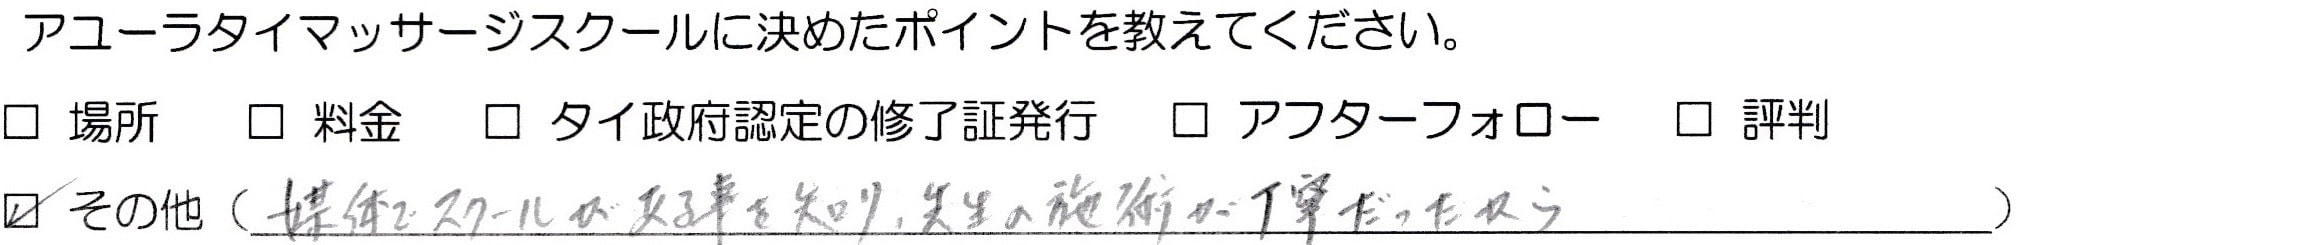 アユーラタイマッサージスクールに決めたポイントを教えてください。
□ 場所 □ 料金 □ タイ政府認定の修了証発行 □ アフターフォロー □ 評判
☑ その他（媒体でスクールが有る事を知り、先生の施術が丁寧だったから）